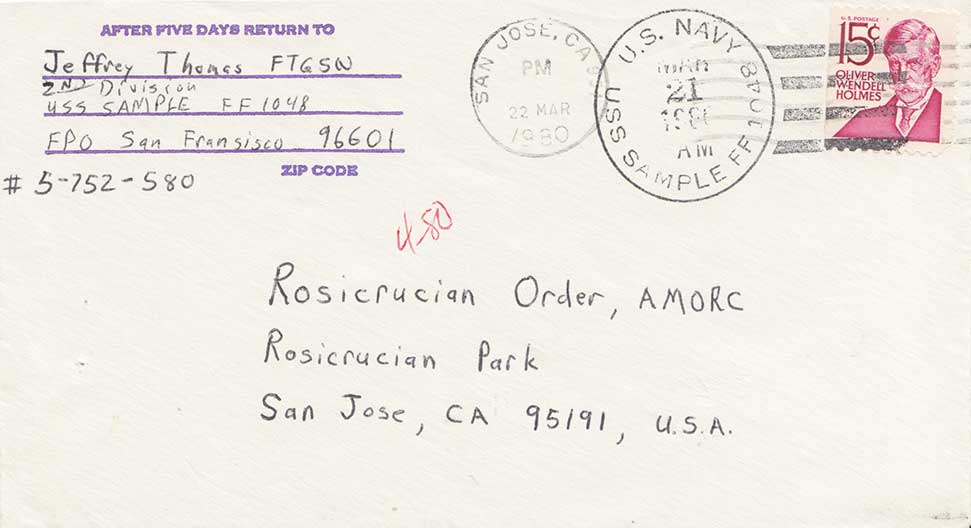 AFTER FIVE DAYS RETURN TO
Jeffrey Thomas FTGSN
2ND Division
USS SAMPLE FF 1048
FPO San Fransisco 96601
ZIP CODE
# 5-752-580
SAN JOSE, CA 9
PM
22 MAR
1980
U.S. NAVY
USS SAMPLE FF 1048
MAR
21
198
AM
U.S. POSTAGE
15¢
OLIVER
WENDELL
HOLMES
4-80
Rosicrucian Order, AMORC
Rosicrucian Park
San Jose, CA 95191, U.S.A.